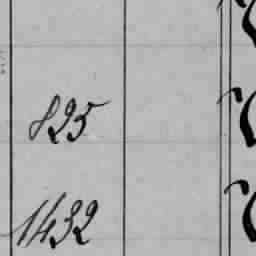 825
1432